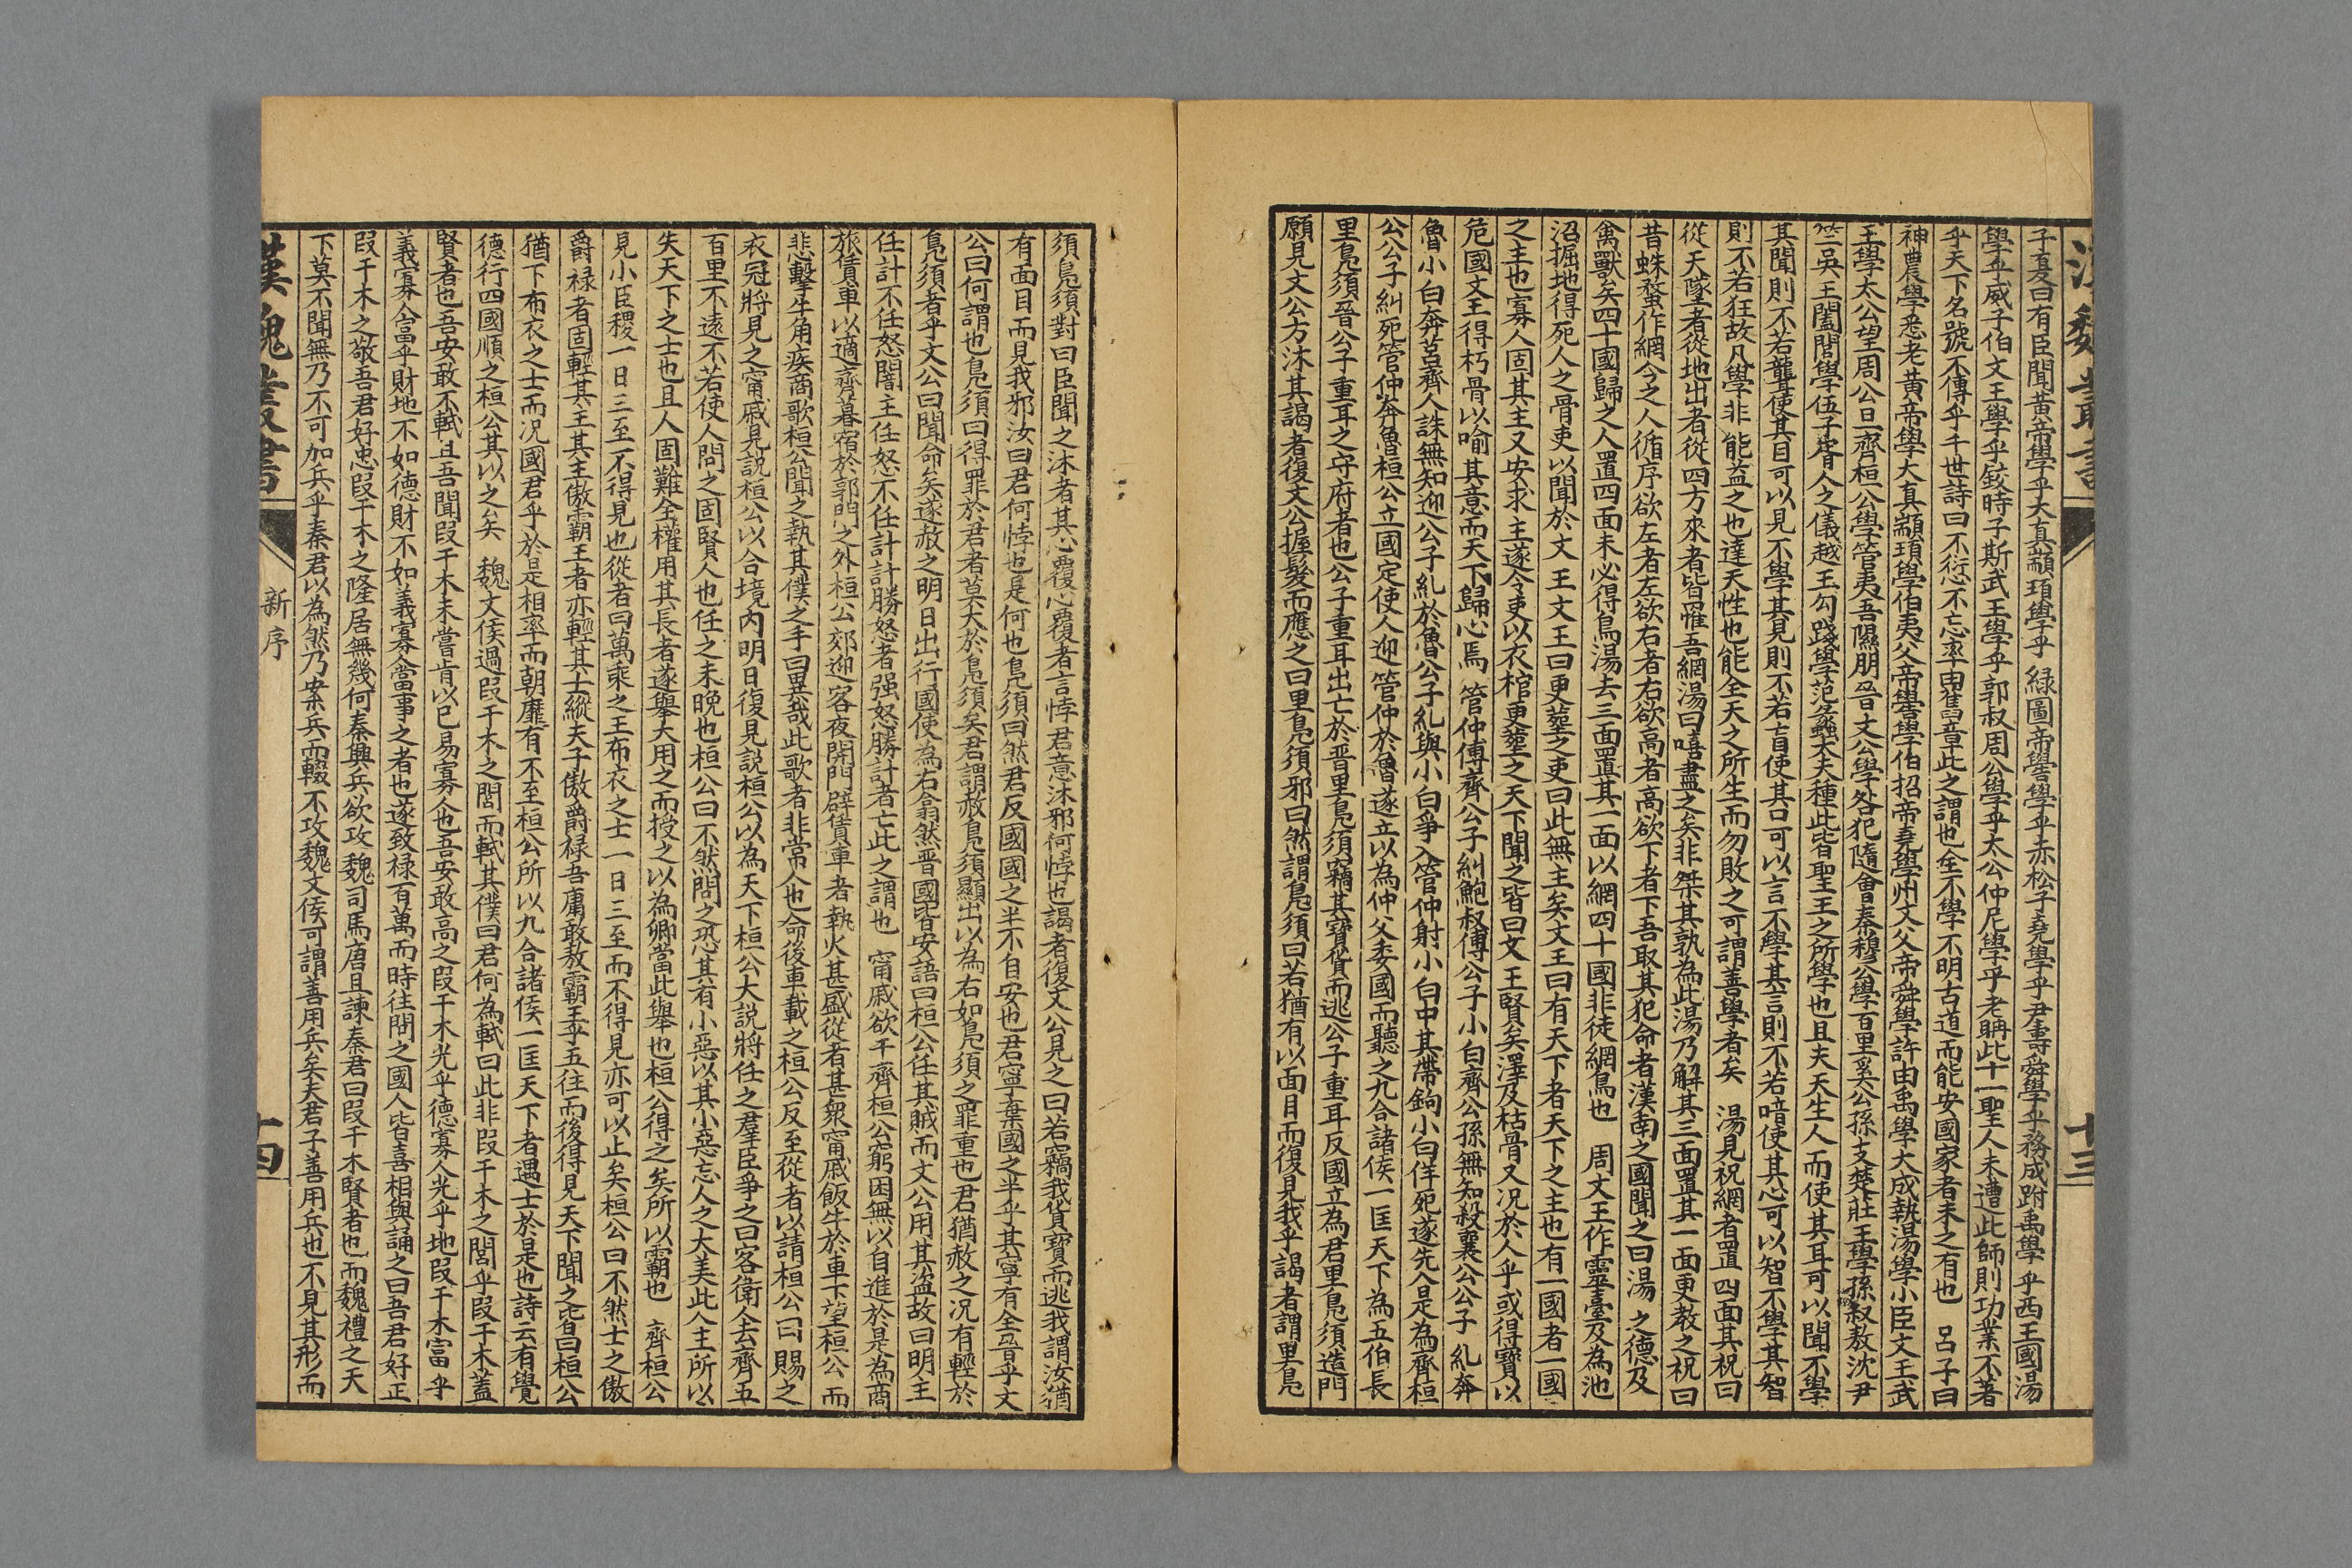 漢魏叢書
十三
子夏曰有臣聞黃帝學乎大真顓頊學乎綠圖帝嚳學乎赤松子堯學乎尹壽舜學乎務成跗禹學乎西王國湯
學乎威子伯文王學乎鉸時子斯武王學乎郭叔周公學乎太公仲尼學乎老聃此十一聖人未遭此師則功業不著
乎天下名號不傳乎千世詩曰不愆不忘率由舊章此之謂也全不學不明古道而能安國家者未之有也　呂子曰
神農學悉老黃帝學大真顓頊學伯夷父帝嚳學伯招帝堯學州文父帝舜學許由禹學大成執湯學小臣文王武
王學太公望周公旦齊桓公學管夷吾隰朋晉文公學咎犯隨會秦穆公學百里奚公孫支楚莊王學孫叔敖沈尹
竺吳王闔閭學伍子胥人之儀越王勾踐學范蠡大夫種此皆聖王之所學也且夫天生人而使其耳可以聞不學
其聞則不若聾使其目可以見不學其見則不若盲使其口可以言不學其言則不若喑使其心可以智不學其智
則不若狂故凡學非能益之也達天性也能全天之所生而勿敗之可謂善學者矣　湯見祝網者置四面其祝曰
從天墜者從地出者從四方來者皆罹吾網湯曰嘻盡之矣非桀其孰為此湯乃解其三面置其一面更教之祝曰
昔蛛蝥作網今之人循序欲左者左欲右者右欲高者高欲下者下吾取其犯命者漢南之國聞之曰湯之德及
禽獸矣四十國歸之人置四面未必得鳥湯去三面置其一面以網四十國非徒網鳥也　周文王作靈臺及為池
沼掘地得死人之骨吏以聞於文王文王曰更葬之吏曰此無主矣文王曰有天下者天下之主也有一國者一國
之主也寡人固其主又安求主遂令吏以衣棺更葬之天下聞之皆曰文王賢矣澤及枯骨又况於人乎或得寶以
危國文王得朽骨以喻其意而天下歸心焉　管仲傅齊公子糾鮑叔傅公子小白齊公孫無知殺襄公公子糺奔
魯小白奔莒齊人誅無知迎公子糺於魯公子糺與小白爭入管仲射小白中其帶鉤小白佯死遂先入是為齊桓
公公子糾死管仲奔魯桓公立國定使人迎管仲於魯遂立以為仲父委國而聽之九合諸侯一匡天下為五伯長
里鳧須晉公子重耳之守府者也公子重耳出亡於晋里鳧須竊其寶貨而逃公子重耳反國立為君里鳧須造門
願見文公方沐其謁者復文公握髮而應之曰里鳧須邪曰然謂鳧須曰若猶有以面目而復見我乎謁者謂里鳧
須鳧須對曰臣聞之沐者其心覆心覆者言悖君意沐邪何悖也謁者復文公見之曰若竊我貨寶而逃我謂汝猶
有面目而見我邪汝曰君何悖也是何也鳧須曰然君反國國之半不自安也君寧棄國之半乎其寧有全晉乎文
公曰何謂也鳧須曰得罪於君者莫大於鳧須矣君謂赦鳧須顯出以為右如鳧須之罪重也君猶赦之况有輕於
鳧須者乎文公曰聞命矣遂赦之明日出行國使為右翕然晋國皆安語曰桓公任其賊而文公用其盗故曰明主
任計不任怒闇主任怒不任計計勝怒者强怒勝計者亡此之謂也　甯戚欲干齊桓公窮困無以自進於是為商
旅賃車以適齊暮宿於郭門之外桓公郊迎客夜開門辟賃車者執火甚盛從者甚衆甯戚飯牛於車下望桓公而
悲擊牛角疾商歌桓公聞之執其僕之手曰異哉此歌者非常人也命後車載之桓公反至從者以請桓公曰賜之
衣冠將見之甯戚見説桓公以合境内明日復見説桓公以為天下桓公大説將任之羣臣爭之曰客衛人去齊五
百里不遠不若使人問之固賢人也任之未晚也桓公曰不然問之恐其有小惡以其小惡忘人之大美此人主所以
失天下之士也且人固難全權用其長者遂舉大用之而授之以為卿當此舉也桓公得之矣所以霸也　齊桓公
見小臣稷一日三至不得見也從者曰萬乘之王布衣之士一日三至而不得見亦可以止矣桓公曰不然士之傲
爵禄者固輕其主其主傲霸王者亦輕其士縱夫子傲爵禄吾庸敢敖霸王乎五往而後得見天下聞之皆曰桓公
猶下布衣之士而况國君乎於是相率而朝靡有不至桓公所以九合諸侯一匡天下者遇士於是也詩云有覺
德行四國順之桓公其以之矣　魏文侯過段干木之閭而軾其僕曰君何為軾曰此非段干木之閭乎段干木蓋
賢者也吾安敢不軾且吾聞段干木未嘗肯以已易寡人也吾安敢高之段干木光乎德寡人光乎地段干木富乎
義寡人富乎財地不如德財不如義寡人當事之者也遂致禄百萬而時往問之國人皆喜相與誦之曰吾君好正
段干木之敬吾君好忠段干木之隆居無幾何秦興兵欲攻魏司馬唐且諫秦君曰段干木賢者也而魏禮之天
下莫不聞無乃不可加兵乎秦君以為然乃案兵而輟不攻魏文侯可謂善用兵矣夫君子善用兵也不見其形而
漢魏叢書
新序
十四